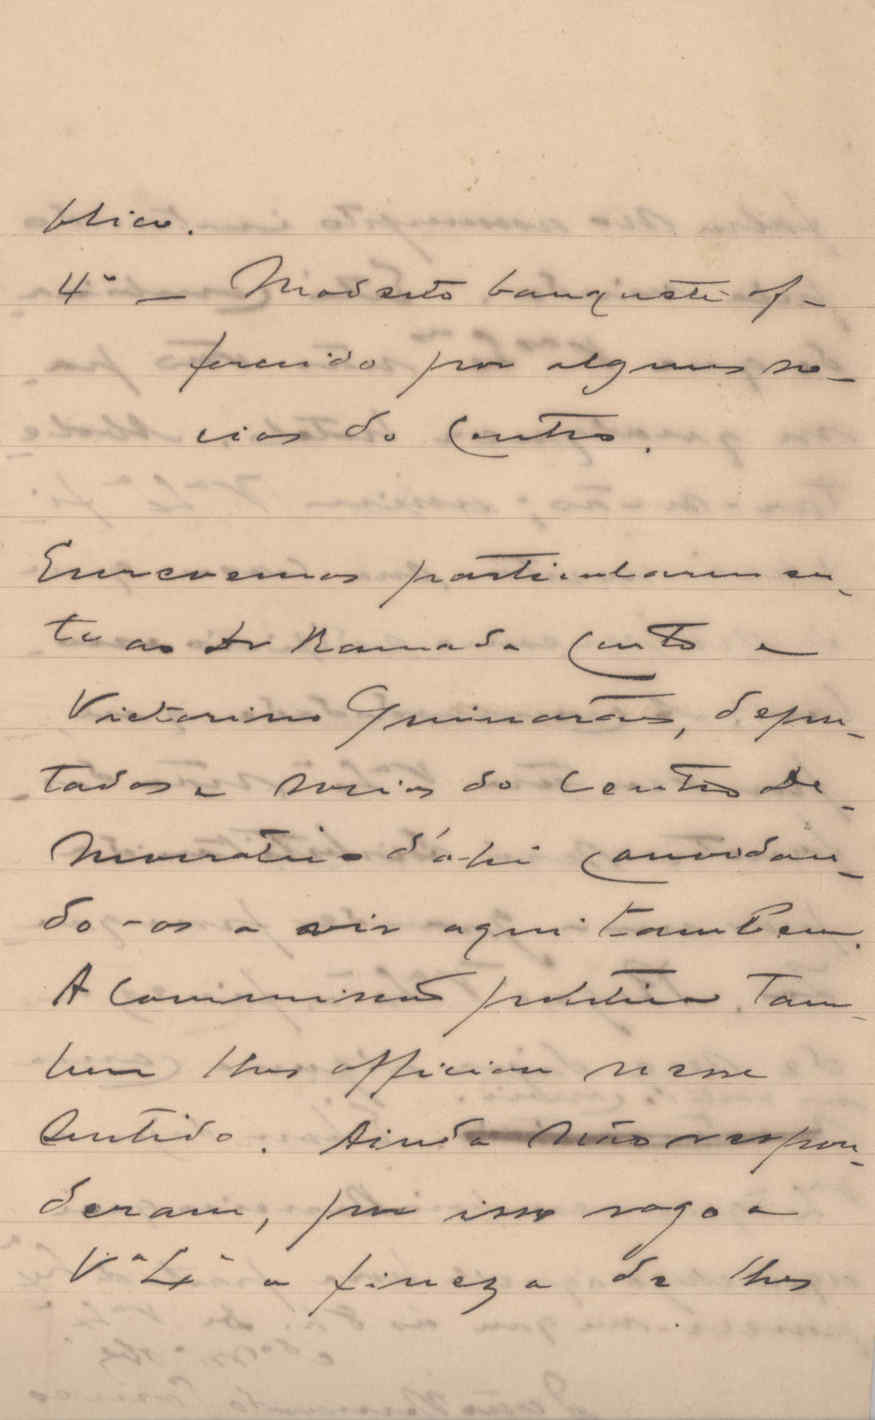 blico.
4º — Modesto banquete of-
ferecido por alguns so-
cios do Centro.
Escrevemos particularmen-
te ao Dr Ramada Curto e
Victorino Guimarães, depu-
tados e socios do Centro De-
mocratico d'ahi convidan-
do-os a vir aqui tambem.
A Commissão politica tam-
bem lhes officiou nesse
sentido. Ainda não respon-
deram, por isso rogo a
Vª Sª a fineza de lhes